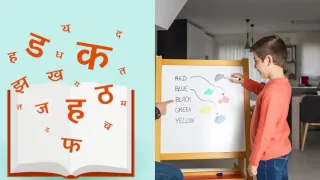 य द
ह ड घ क त
झ ख ग
त ज ह ठ म
त फ च
RED
BLUE
BLACK
GREEN
YELLOW